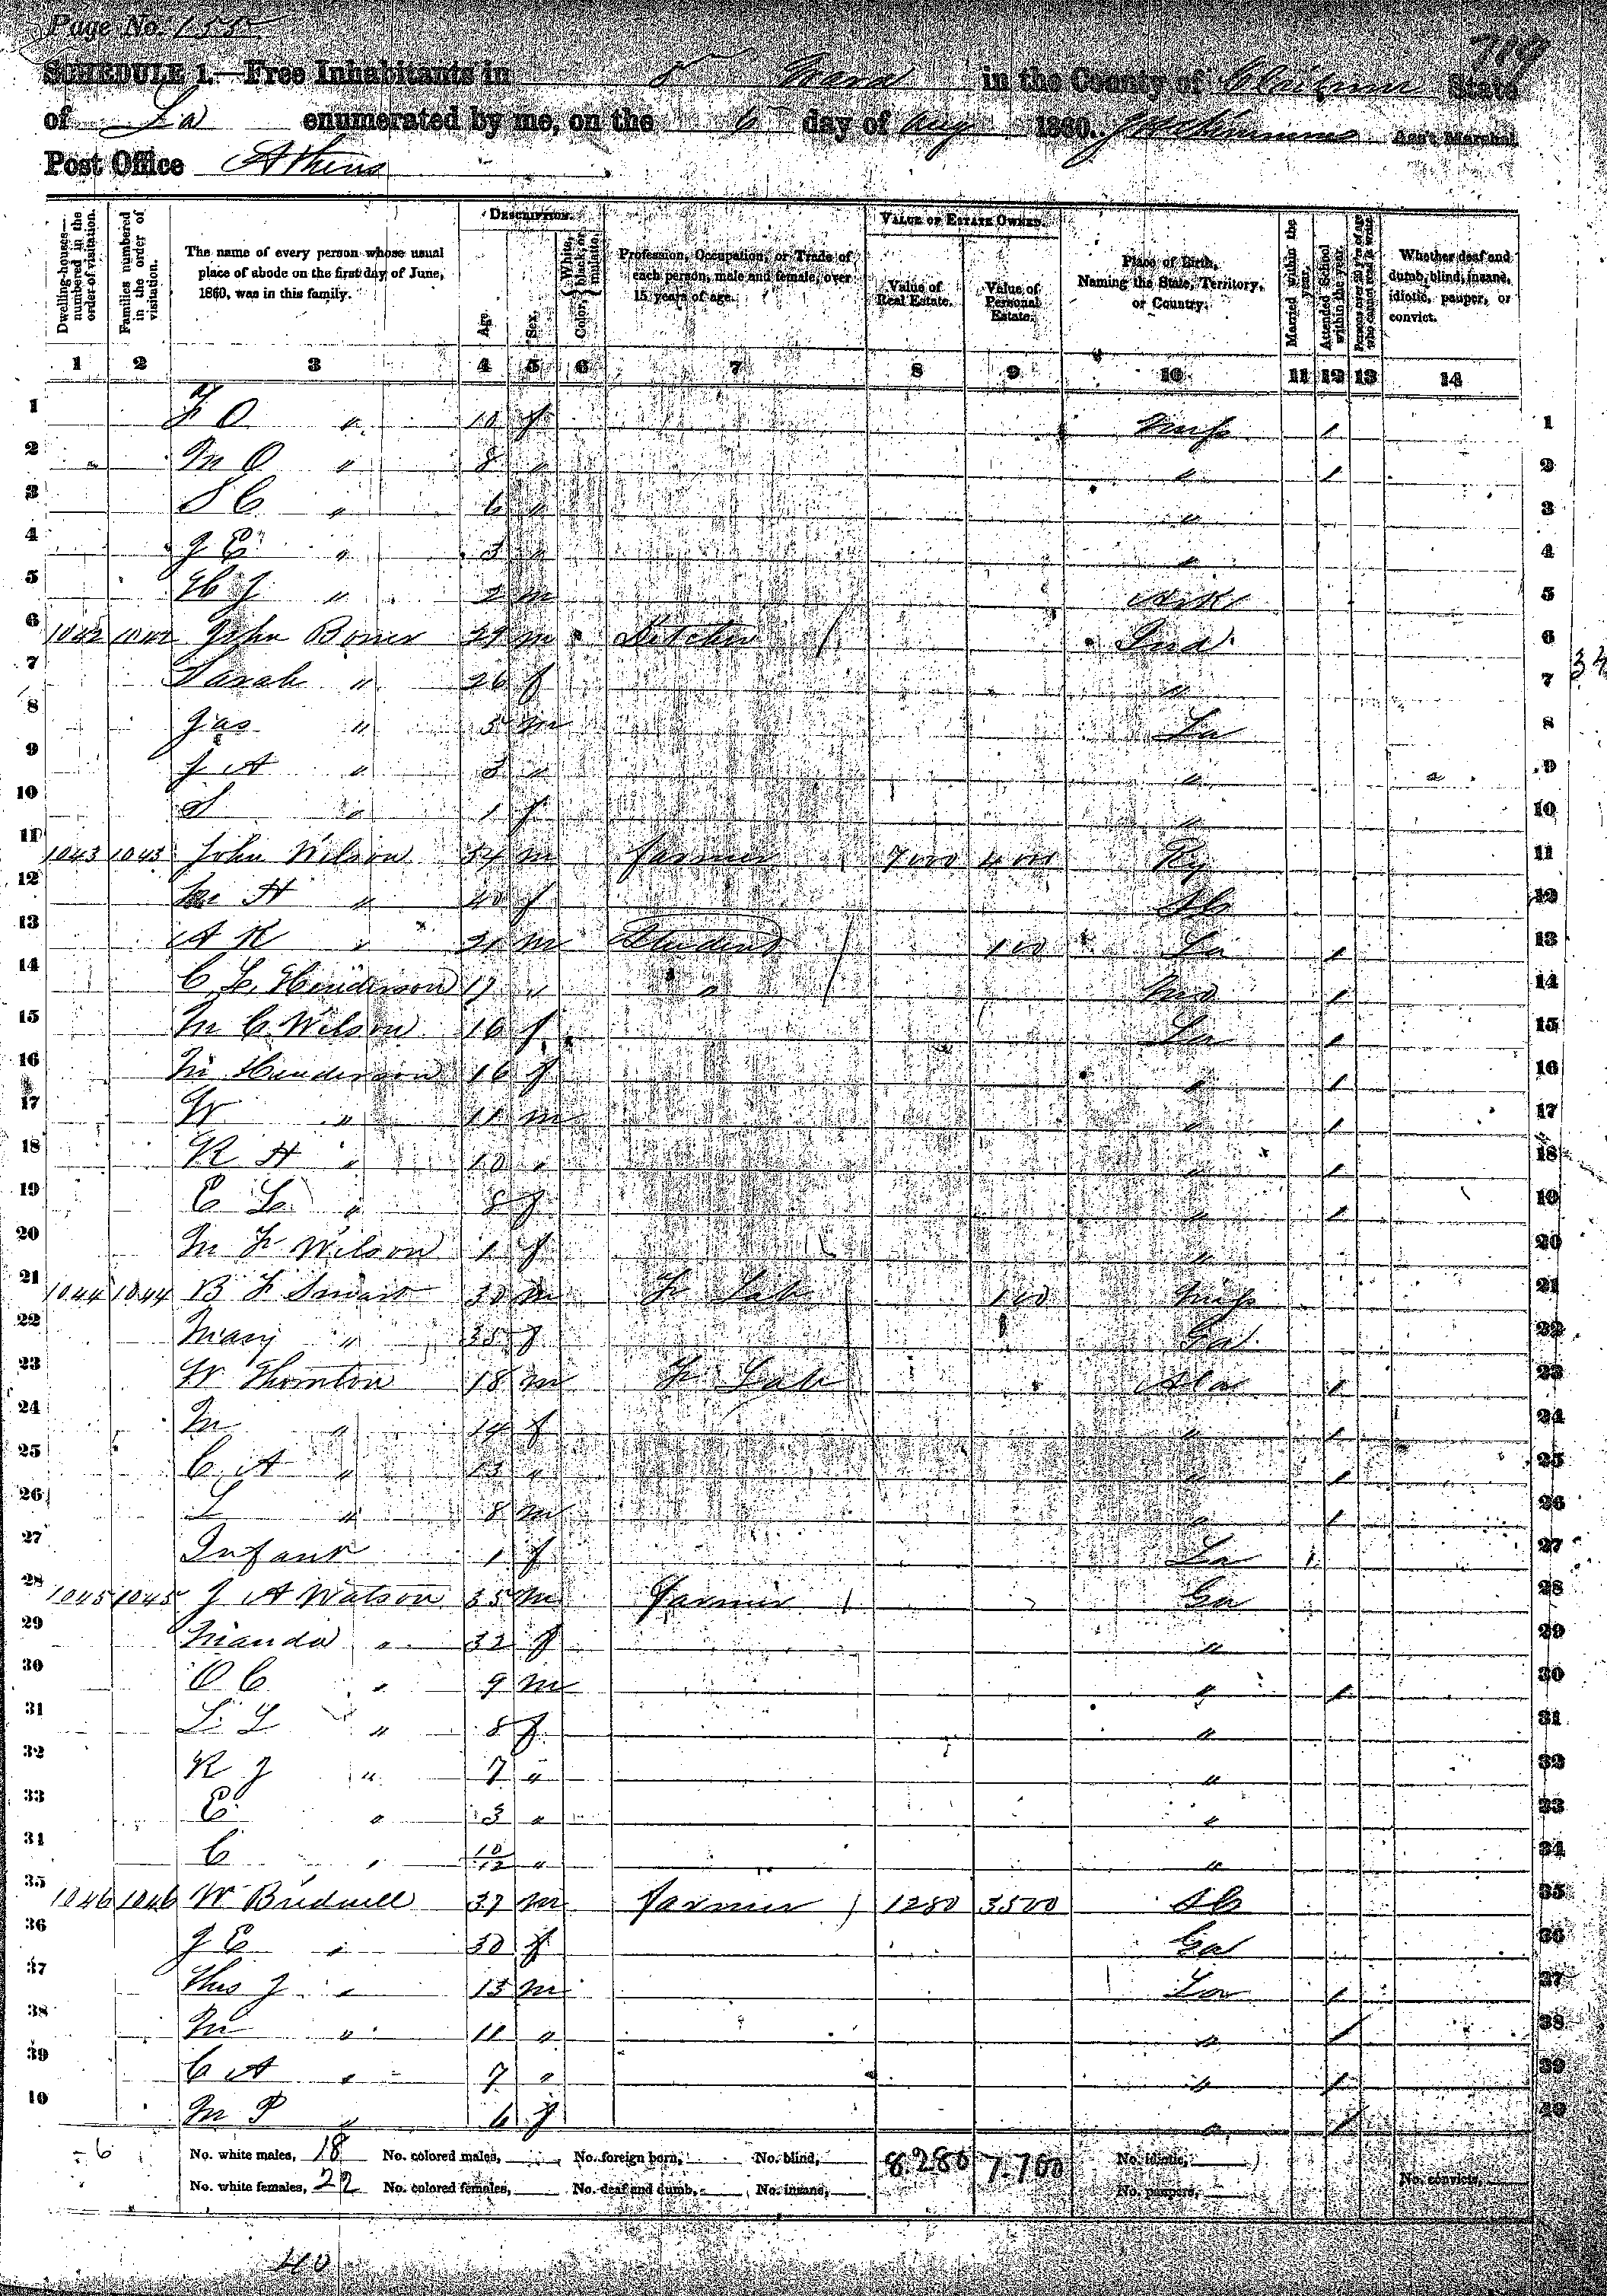 Page No. 155
719
SCHEDULE 1.—Free Inhabitants in 8 Ward in the County of Claiborne State
of La enumerated by me, on the 6 day of Aug 1860. Ass't Marshal
Post Office Athens
Dwelling-houses—numbered in the order of visitation.
Families numbered in the order of visitation.
The name of every person whose usual place of abode on the first day of June, 1860, was in this family.
Description.
Age.
Sex.
Color, White, black, or mulatto.
Profession, Occupation, or Trade of each person, male and female, over 15 years of age.
Value of Estate Owned.
Value of Real Estate.
Value of Personal Estate.
Place of Birth, Naming the State, Territory, or Country.
Married within the year.
Attended School within the year.
Persons over 20 y'rs of age who cannot read & write.
Whether deaf and dumb, blind, insane, idiotic, pauper, or convict.
1 2 3 4 5 6 7 8 9 10 11 12 13 14
1 F O " 10 f Miss / 1
2 M O " 8 " " / 2
3 S C " 6 " " 3
4 J E " 3 " " 4
5 H J " 2 m Ark 5
6 1042 1042 John Boner 29 m Ditcher / Ind 6
7 Sarah " 26 f " 7
8 Jas " 5 m La 8
9 J A " 3 " " 9
10 S " 1 f " 10
11 1043 1043 John Wilson 54 m Farmer 7000 4000 Ky 11
12 H " 40 f Ab 12
13 A K " 21 m Student 100 La / 13
14 C L Henderson 17 " " / 14
15 M C Wilson 16 f La / 15
16 M Henderson 16 f " / 16
17 W " 11 m " / 17
18 R H " 10 " " / 18
19 C L " 8 f " / 19
20 M F Wilson 1 f " 20
21 1044 1044 B F 30 m F Lab 100 Miss 21
22 Mary " 35 f Ga 22
23 W Thornton 18 m F Lab Ala / 23
24 M " 14 f " / 24
25 C A " 13 " " / 25
26 L " 8 m " / 26
27 Infant 1 f La 27
28 1045 1045 J A Watson 35 m Farmer / Ga 28
29 Manda " 32 f " 29
30 O C " 9 m " / 30
31 L L " 8 f " 31
32 R J " 7 " " 32
33 E " 3 " " 33
34 C " 10/12 " " 34
35 1046 1046 W Bridwell 37 m Farmer / 1280 3500 Ab 35
36 J E " 30 f Ga 36
37 Thos J " 13 m La / 37
38 M " 11 " " / 38
39 C A " 7 " " / 39
40 M P " 6 f " / 40
34
6 No. white males, 18 No. colored males, No. foreign born, No. blind, 8.280 7.700 No. idiotic,
No. white females, 22 No. colored females, No. deaf and dumb, No. insane, No. paupers, No. convicts,
40